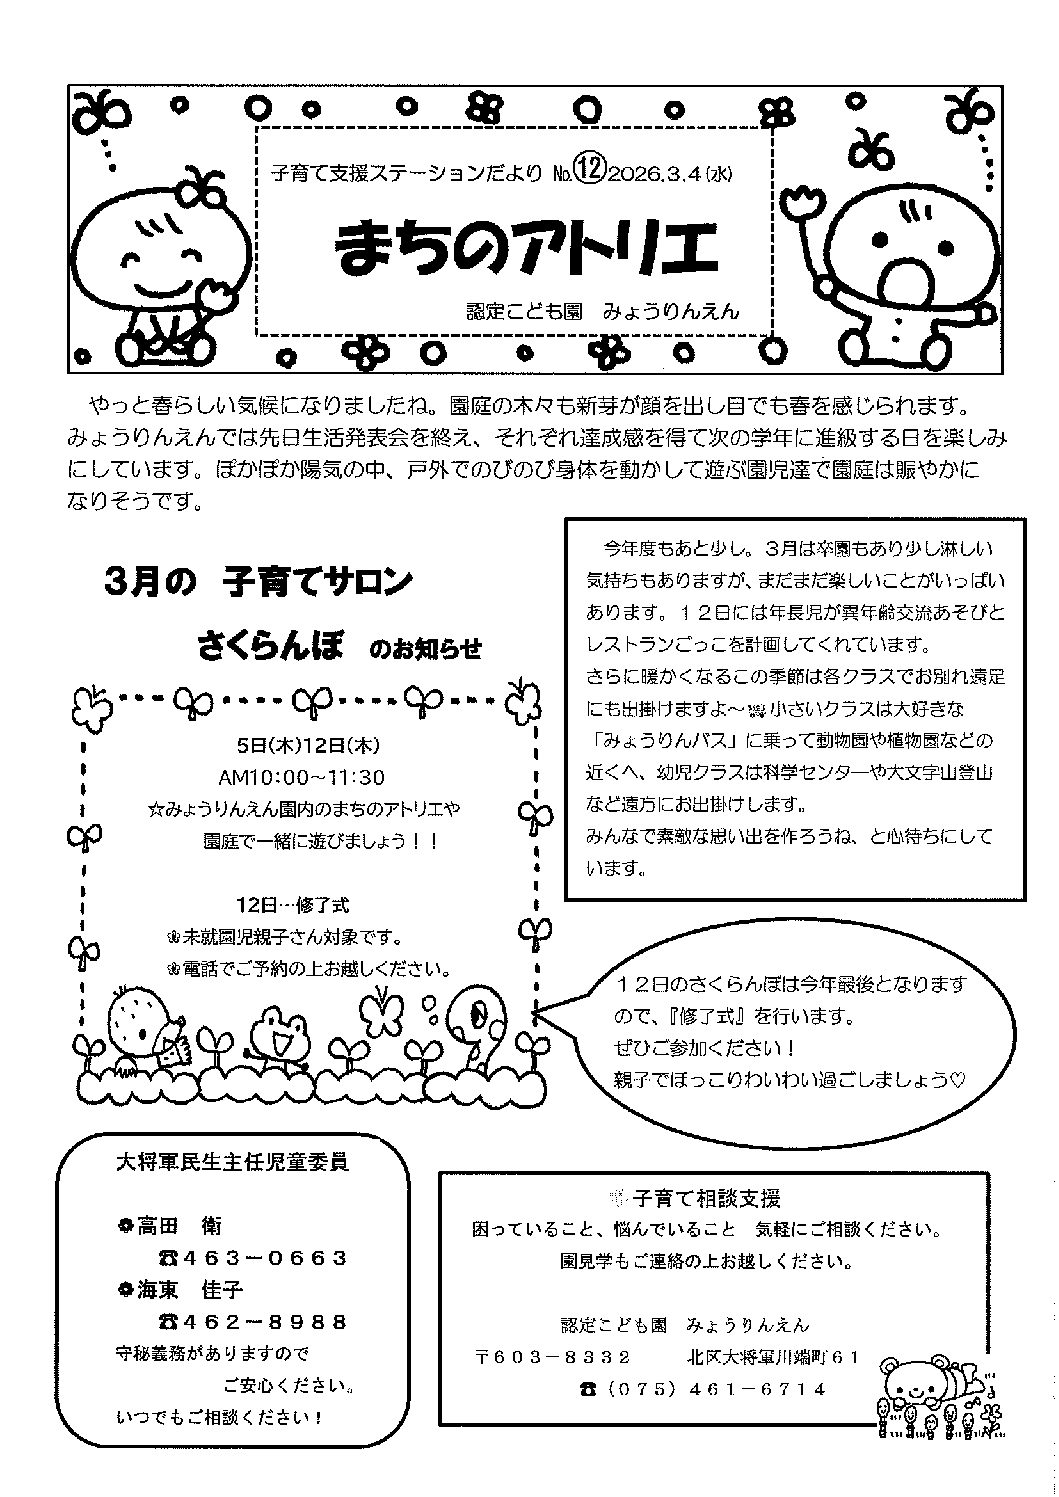 子育て支援ステーションだより №⑫2026.3.4(水)
まちのアトリエ
認定こども園　みょうりんえん
やっと春らしい気候になりましたね。園庭の木々も新芽が顔を出し目でも春を感じられます。
みょうりんえんでは先日生活発表会を終え、それぞれ達成感を得て次の学年に進級する日を楽しみ
にしています。ぽかぽか陽気の中、戸外でのびのび身体を動かして遊ぶ園児達で園庭は賑やかに
なりそうです。
3月の　子育てサロン
さくらんぼ　のお知らせ
5日(木)12日(木)
AM10:00～11:30
☆みょうりんえん園内のまちのアトリエや
園庭で一緒に遊びましょう！！
12日…修了式
❀未就園児親子さん対象です。
❀電話でご予約の上お越しください。
今年度もあと少し。３月は卒園もあり少し淋しい
気持ちもありますが、まだまだ楽しいことがいっぱい
あります。１２日には年長児が異年齢交流あそびと
レストランごっこを計画してくれています。
さらに暖かくなるこの季節は各クラスでお別れ遠足
にも出掛けますよ～小さいクラスは大好きな
「みょうりんバス」に乗って動物園や植物園などの
近くへ、幼児クラスは科学センターや大文字山登山
など遠方にお出掛けします。
みんなで素敵な思い出を作ろうね、と心待ちにして
います。
１２日のさくらんぼは今年最後となります
ので、『修了式』を行います。
ぜひご参加ください！
親子でほっこりわいわい過ごしましょう♡
大将軍民生主任児童委員
❁高田　衛
☎４６３－０６６３
❁海東　佳子
☎４６２－８９８８
守秘義務がありますので
ご安心ください。
いつでもご相談ください！
子育て相談支援
困っていること、悩んでいること　気軽にご相談ください。
園見学もご連絡の上お越しください。
認定こども園　みょうりんえん
〒６０３－８３３２　　北区大将軍川端町６１
☎（０７５）４６１－６７１４